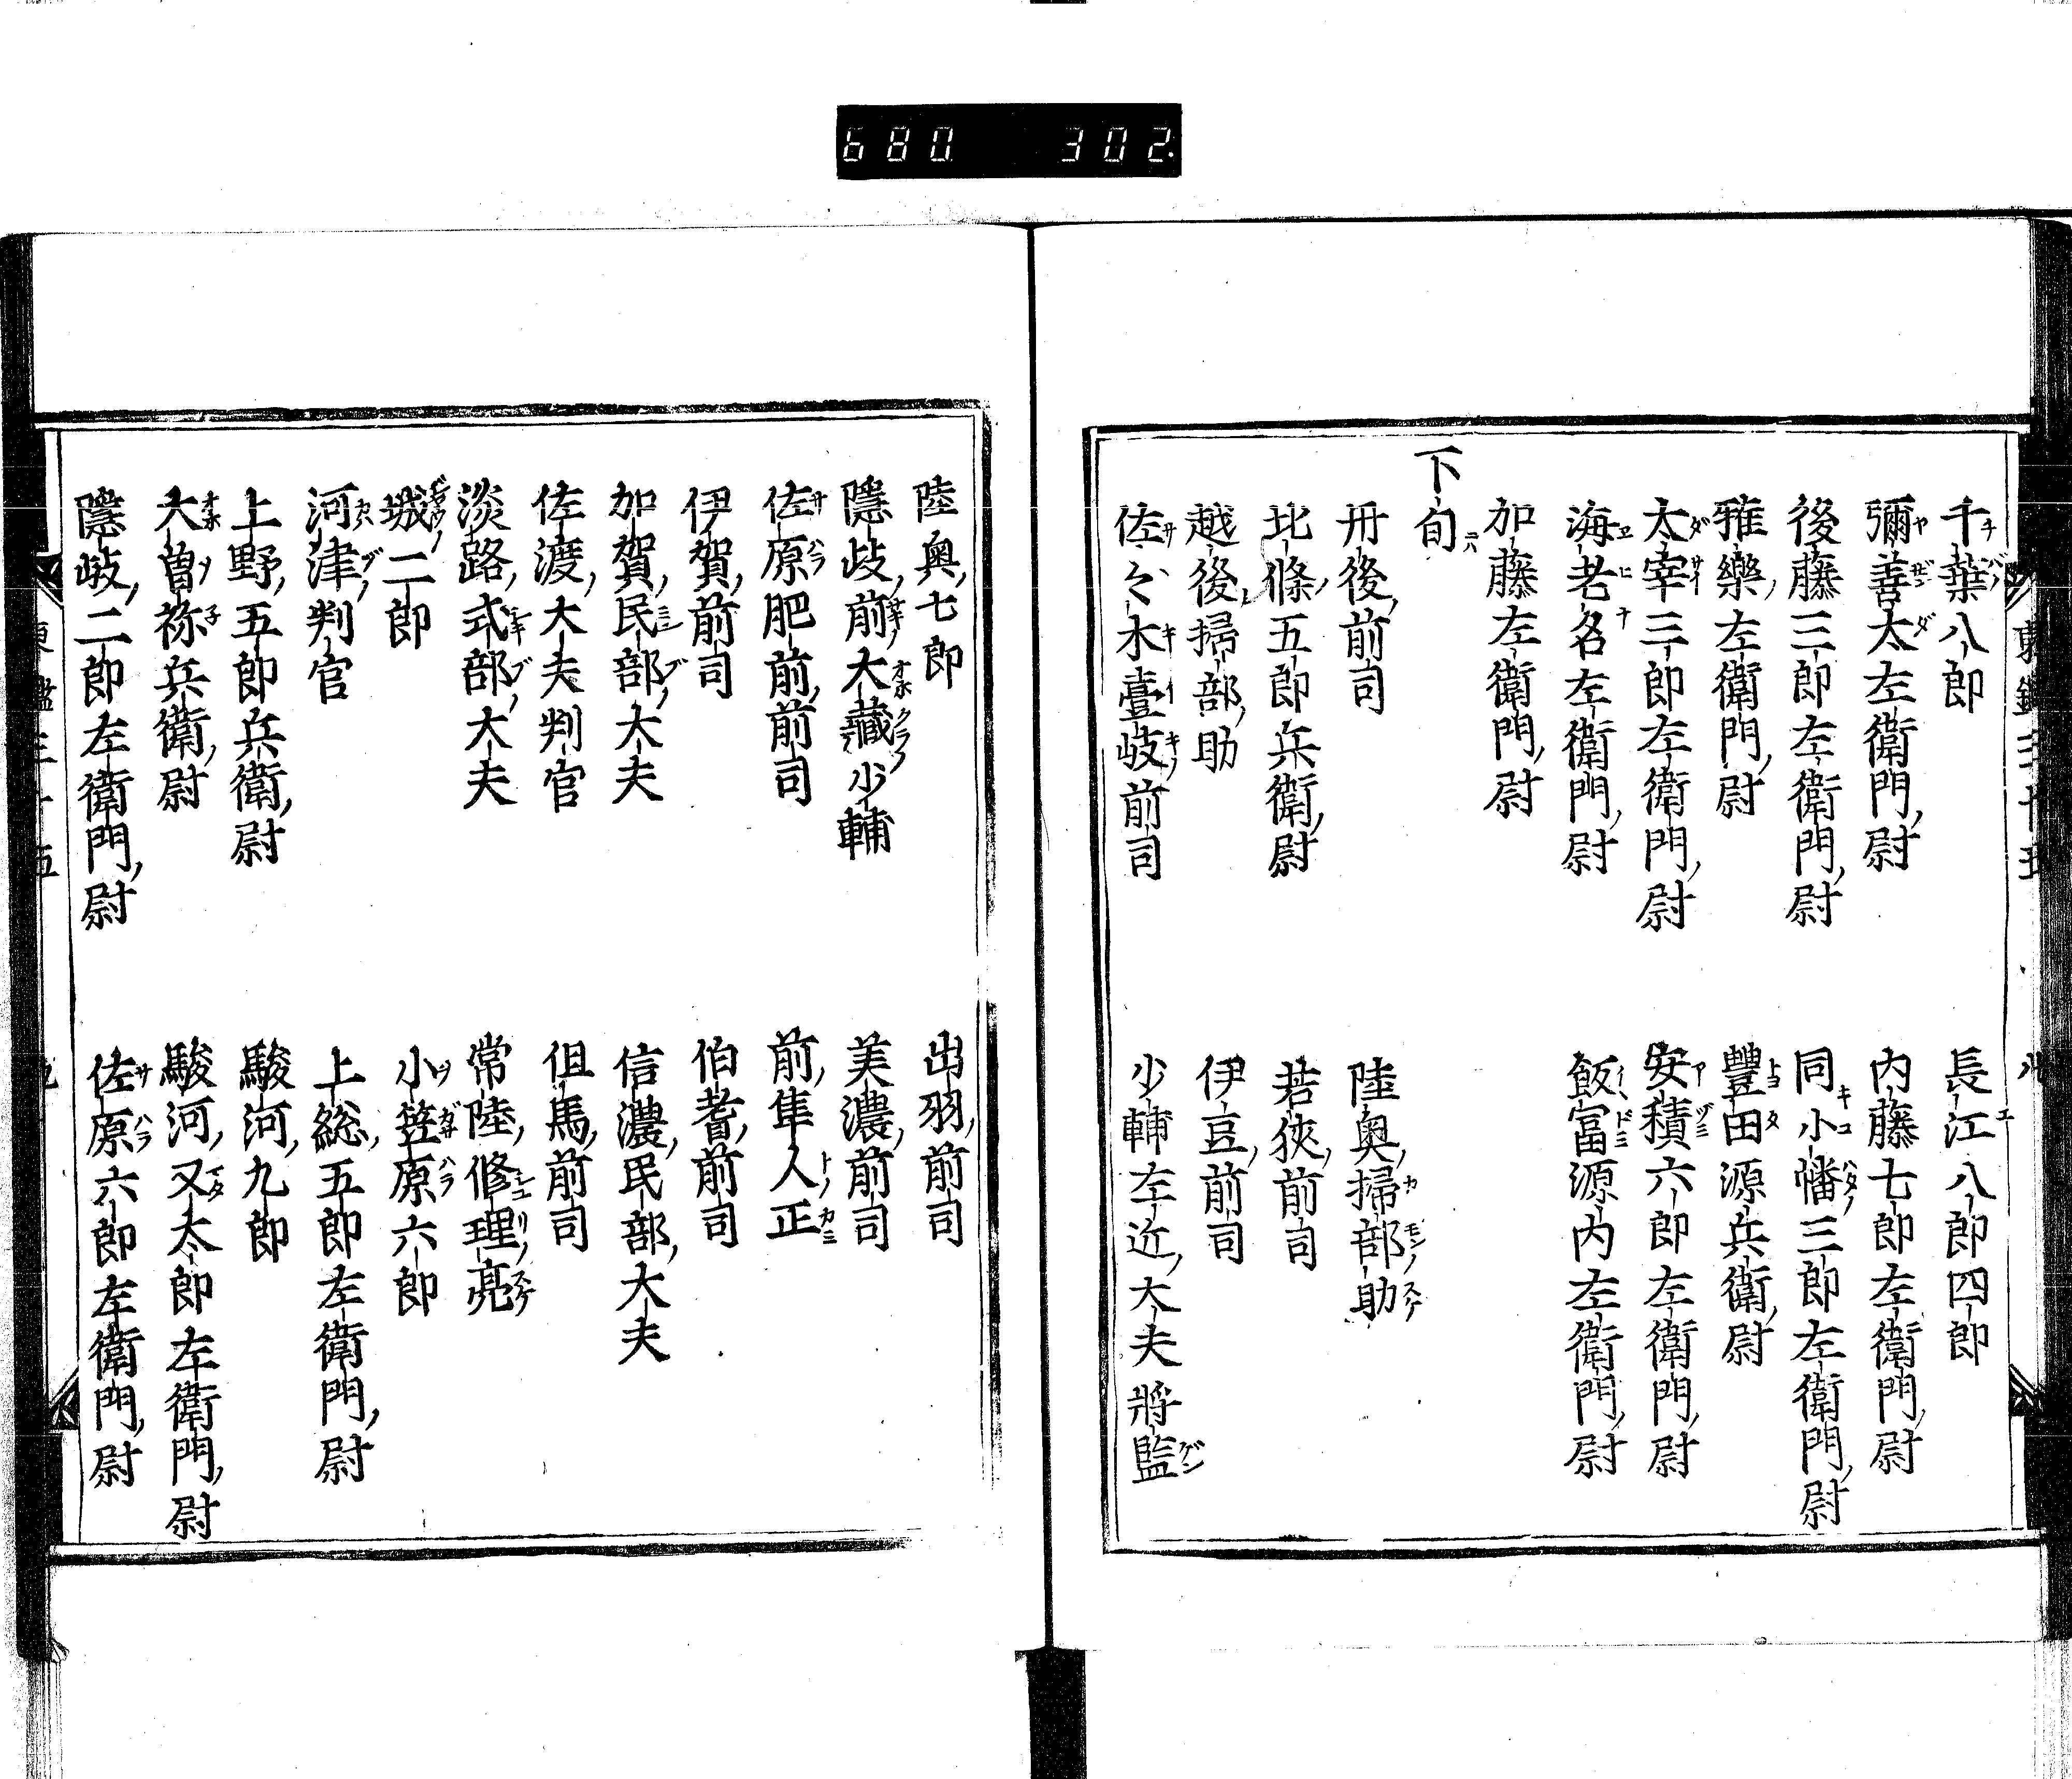 680 302
千葉八郎 長江八郎四郎
彌善太左衛門尉 内藤七郎左衛門尉
後藤三郎左衛門尉 同小幡三郎左衛門尉
雅樂左衛門尉 豐田源兵衛尉
太宰三郎左衛門尉 安積六郎左衛門尉
海老名左衛門尉 飯富源内左衛門尉
加藤左衛門尉
下旬
丹後前司 陸奥掃部助
北條五郎兵衛尉 若狹前司
越後掃部助 伊豆前司
佐々木壹岐前司 少輔左近大夫將監
陸奥七郎 出羽前司
隱岐前大藏少輔 美濃前司
佐原肥前前司 前隼人正
伊賀前司 伯耆前司
加賀民部大夫 信濃民部大夫
佐渡大夫判官 但馬前司
淡路式部大夫 常陸修理亮
城二郎 小笠原六郎
河津判官 上総五郎左衛門尉
上野五郎兵衛尉 駿河九郎
大曽祢兵衛尉 駿河又太郎左衛門尉
隱岐二郎左衛門尉 佐原六郎左衛門尉